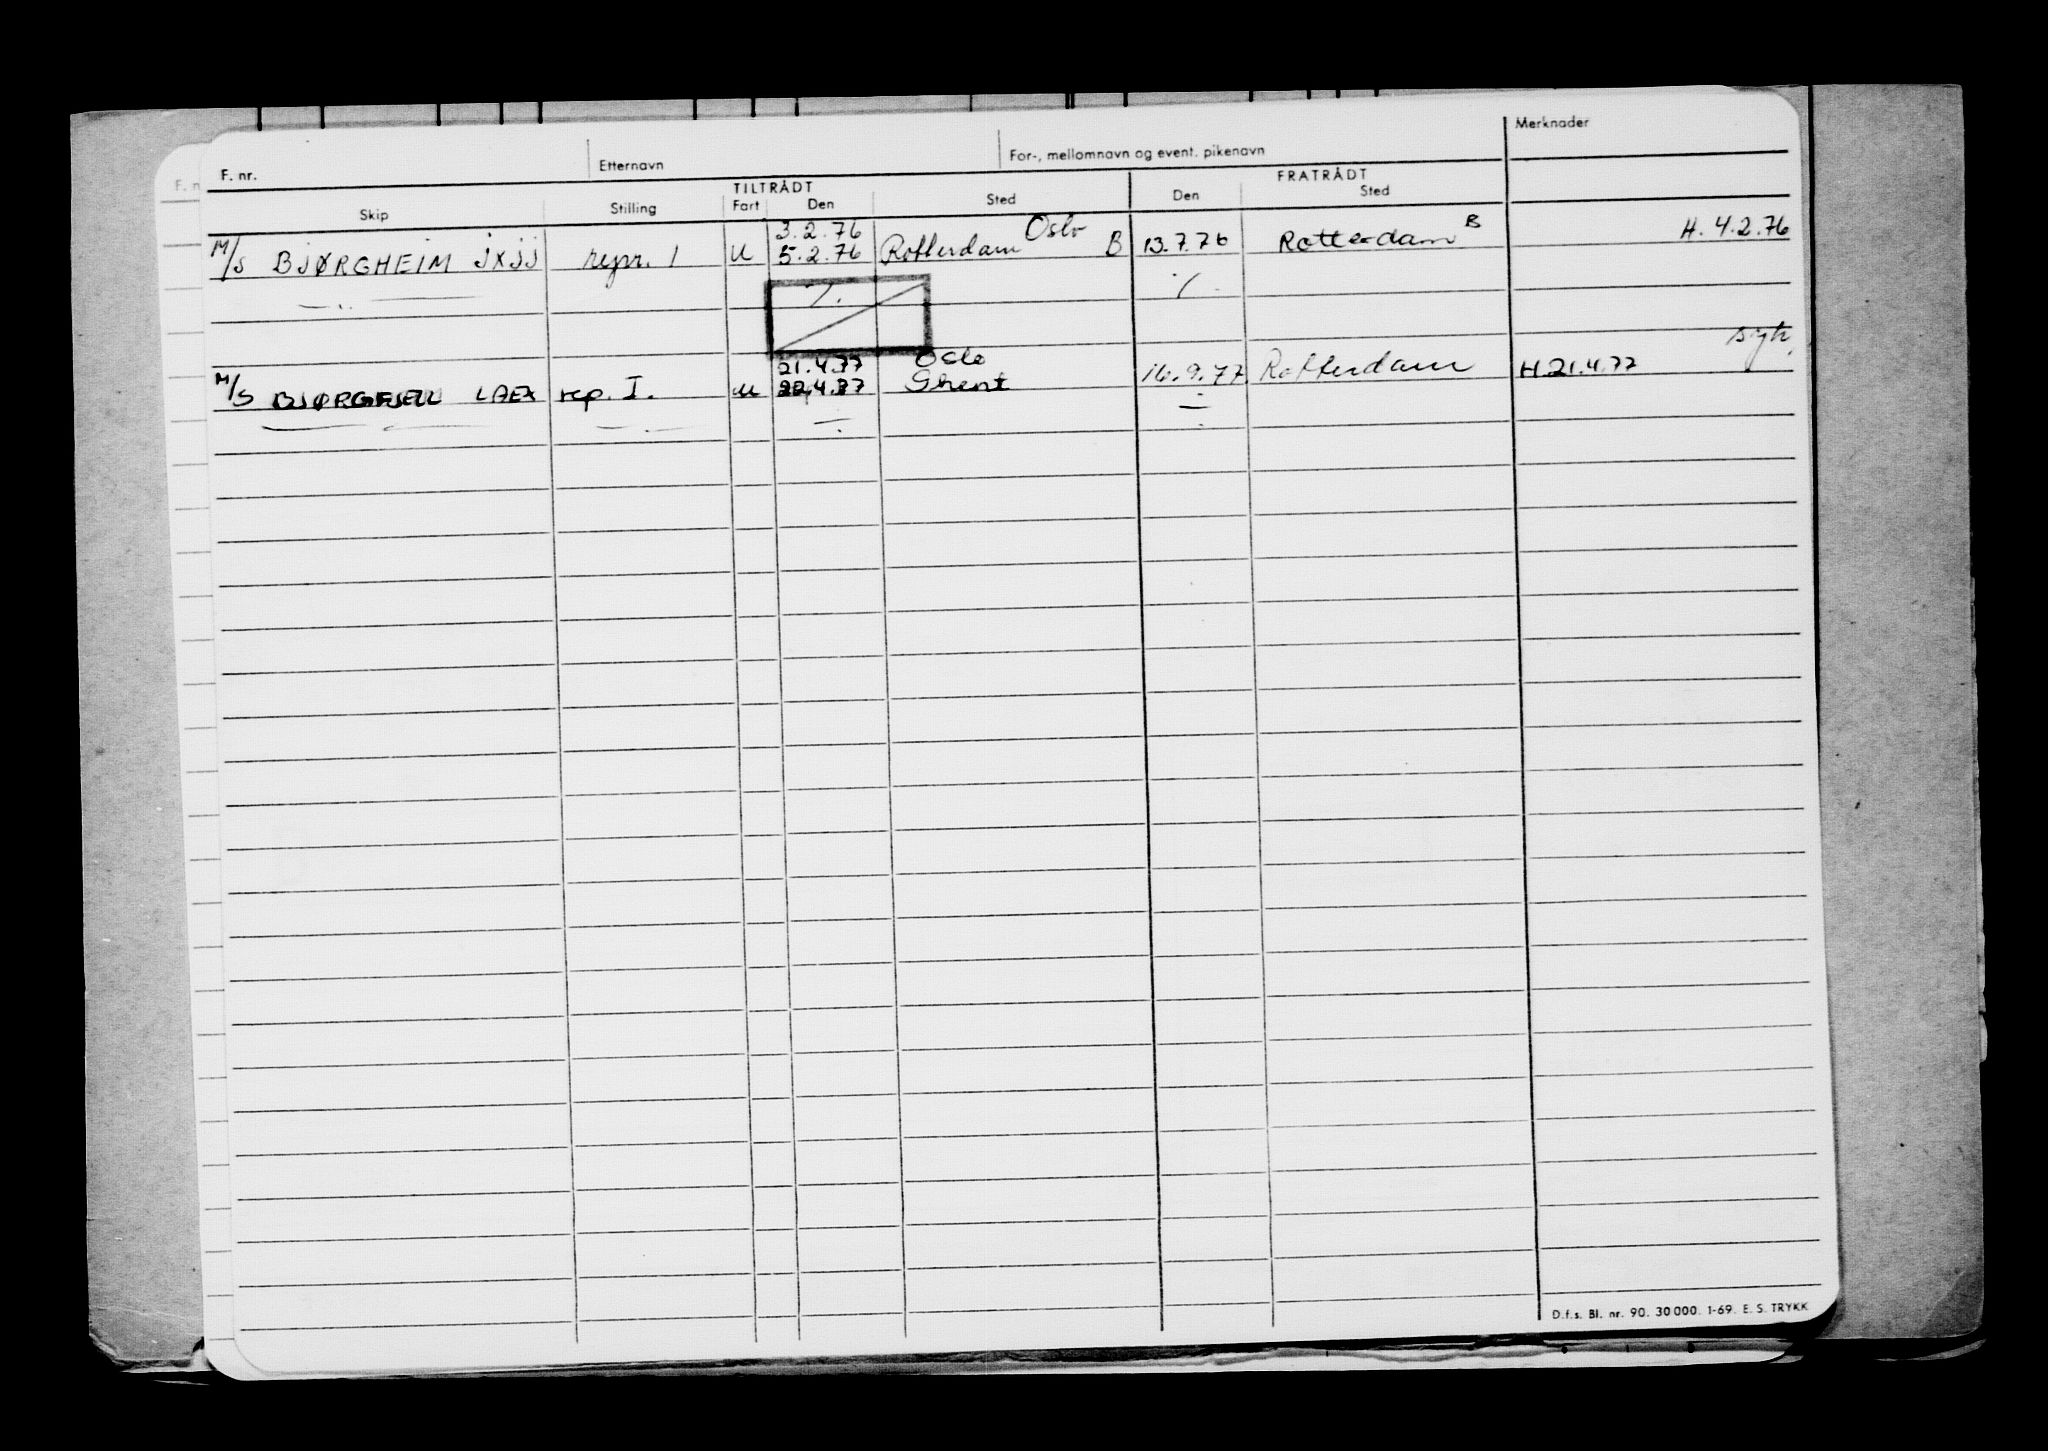 F. nr. Etternavn For-, mellomnavn og event. pikenavn Merknader
TILTRÅDT FRATRÅDT
Skip Stilling Fart Den Sted Den Sted
3.2.76 Oslo
M/S BJØRGHEIM JXJJ repr. 1 U 5.2.76 Rotterdam B 13.7.76 Rotterdam B H. 4.2.76
21.4.77 Oslo syk.
M/S BJØRGFJELL LAEX rep. I. U 22.4.77 Ghent 16.9.77 Rotterdam H 21.4.77
D.f.s. Bl. nr. 90. 30 000. 1-69. E. S. TRYKK